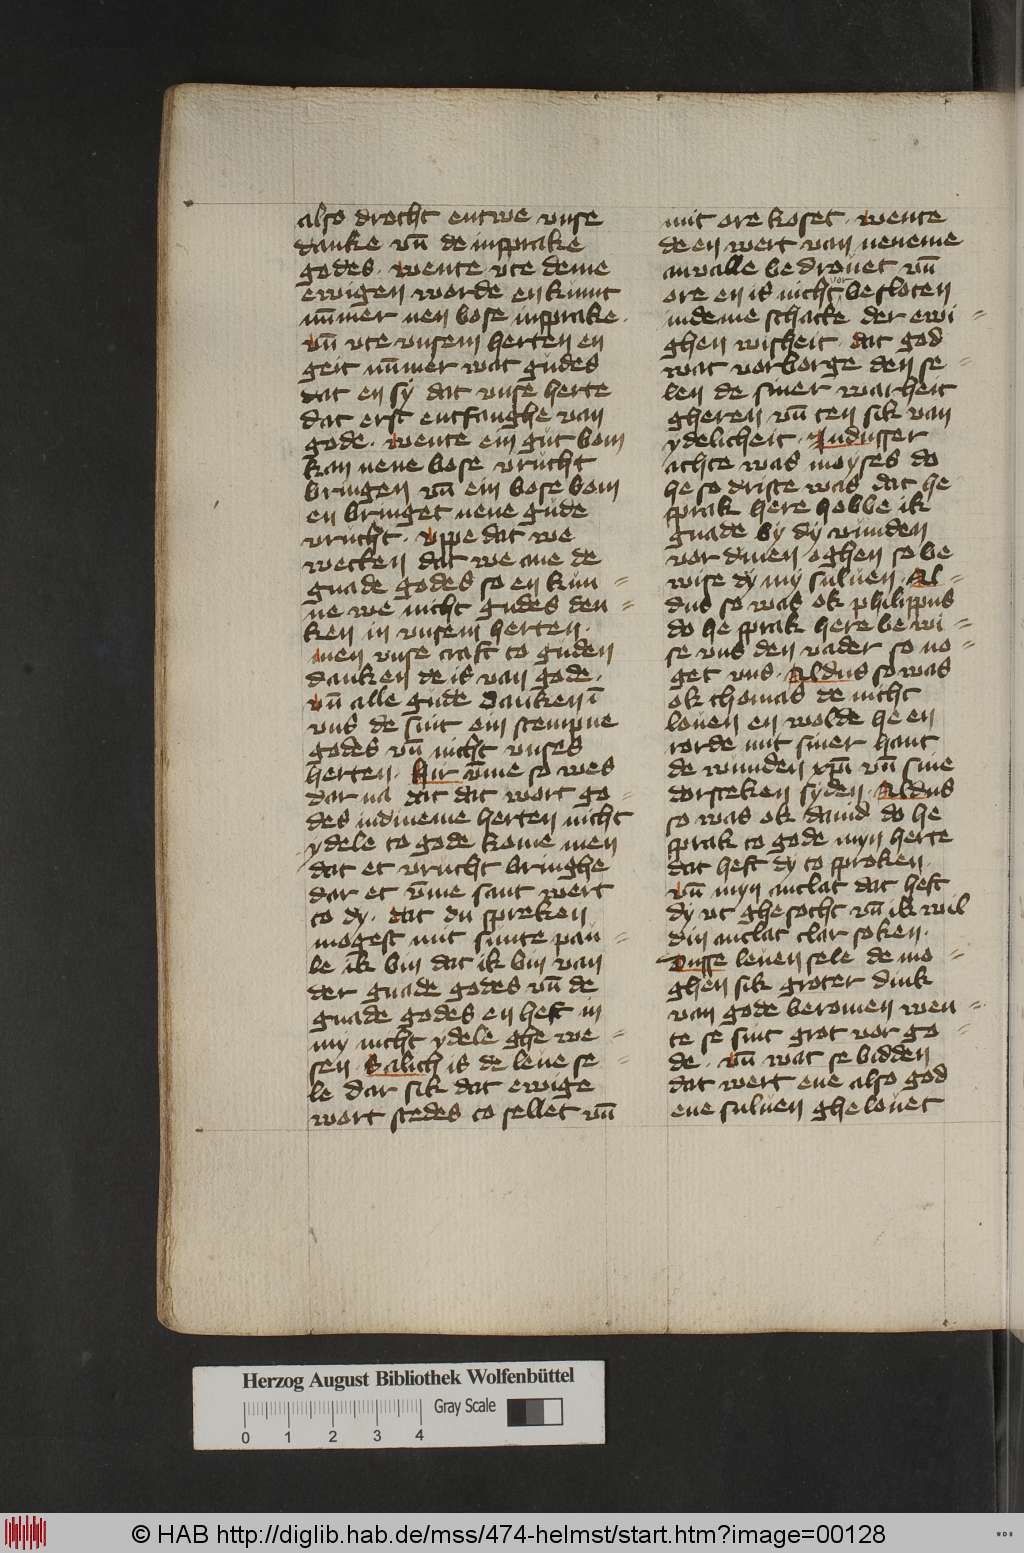 also drocht entwe vnse
danke vn̄ de insprake
godes · wente vte deme
ewigen worde en kumt
nūmer nen bose insprake ·
vn̄ vte vnsem herten en
geit nūmer wat gudes
dat en sy dat vnse herte
dat erst entfanghe van
gode · wente ein gut bom
kan nene bose vrucht
bringen vn̄ ein bose bom
en bringet nene gude
vrucht · vppe dat we
wecken dat we ane de
gnade godes so en kun=
ne we nicht gudes den=
ken in vnsem herten ·
men vnse craft to guden
danken de is van gode ·
vn̄ alle gude danken ī
vns de sint ein stempne
godes vn̄ nicht vnses
herten · Hir v̄me so wes
dar na dat dat wort go=
des indineme herten nicht
ydele to gode kome men
dat et vrucht bringhe
dar et v̄me sant wert
to dy · dat du spreken
mogest mit sunte pau=
le ik bin dat ik bin van
der gnade godes vn̄ de
gnade godes en heft in
my nicht ydele ghe we=
sen · Salich is de leue se=
le dar sik dat ewige
wort stedes to sellet vn̄
mit ore koset · wente
de en wert van neneme
anvalle bedrouet vn̄
ore en is nicht vor besloten
indeme schatte der ewi=
ghen wisheit · dat god
wat vorborge den se=
len de siner warheit
gheren vn̄ ten sik van
ydelicheit · Indusser
achte was moyses do
he so driste was dat he
sprak here hebbe ik
gnade by dy vunden
vor dinen oghen so be
wise dy my suluen · Al=
dus so was ok philippus
do he sprak here bewi=
se vns den vader so no=
get vns · Aldus so was
ok thomas de nicht
louen en wolde he en
rorde mit siner hant
de wunden xpī vn̄ sine
dorsteken syden · Aldus
so was ok dauid do he
sprak to gode myn herte
dat heft dy to sproken ·
vn̄ myn antlat dat heft
dy vt ghesocht vn̄ ik wil
din antlat clar soken ·
Dusse leuen sele de mo=
ghen sik groter dink
van gode beromen wen=
te se sint grot vor go=
de · vn̄ wat se bidden
dat wert ene also god
ene suluen ghelouet
Herzog August Bibliothek Wolfenbüttel
Gray Scale
0 1 2 3 4
© HAB http://diglib.hab.de/mss/474-helmst/start.htm?image=00128
WDB